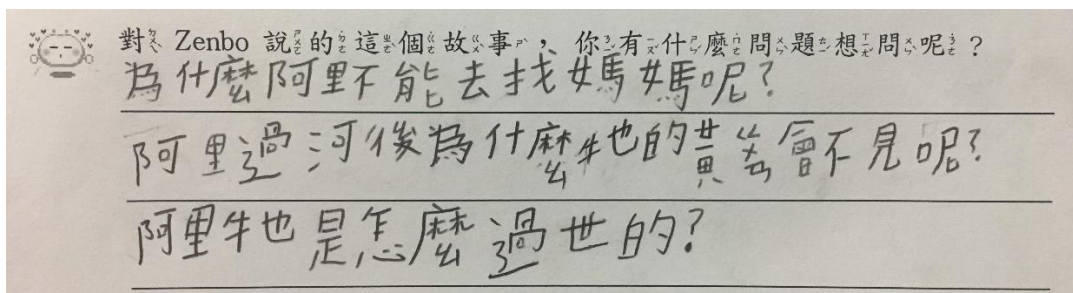 對 Zenbo 說的這個故事，你有什麼問題想問呢？
為什麼阿里不能去找媽媽呢?
阿里過河後為什麼牠的黃ㄍㄡˇ會不見呢?
阿里牠是怎麼過世的?